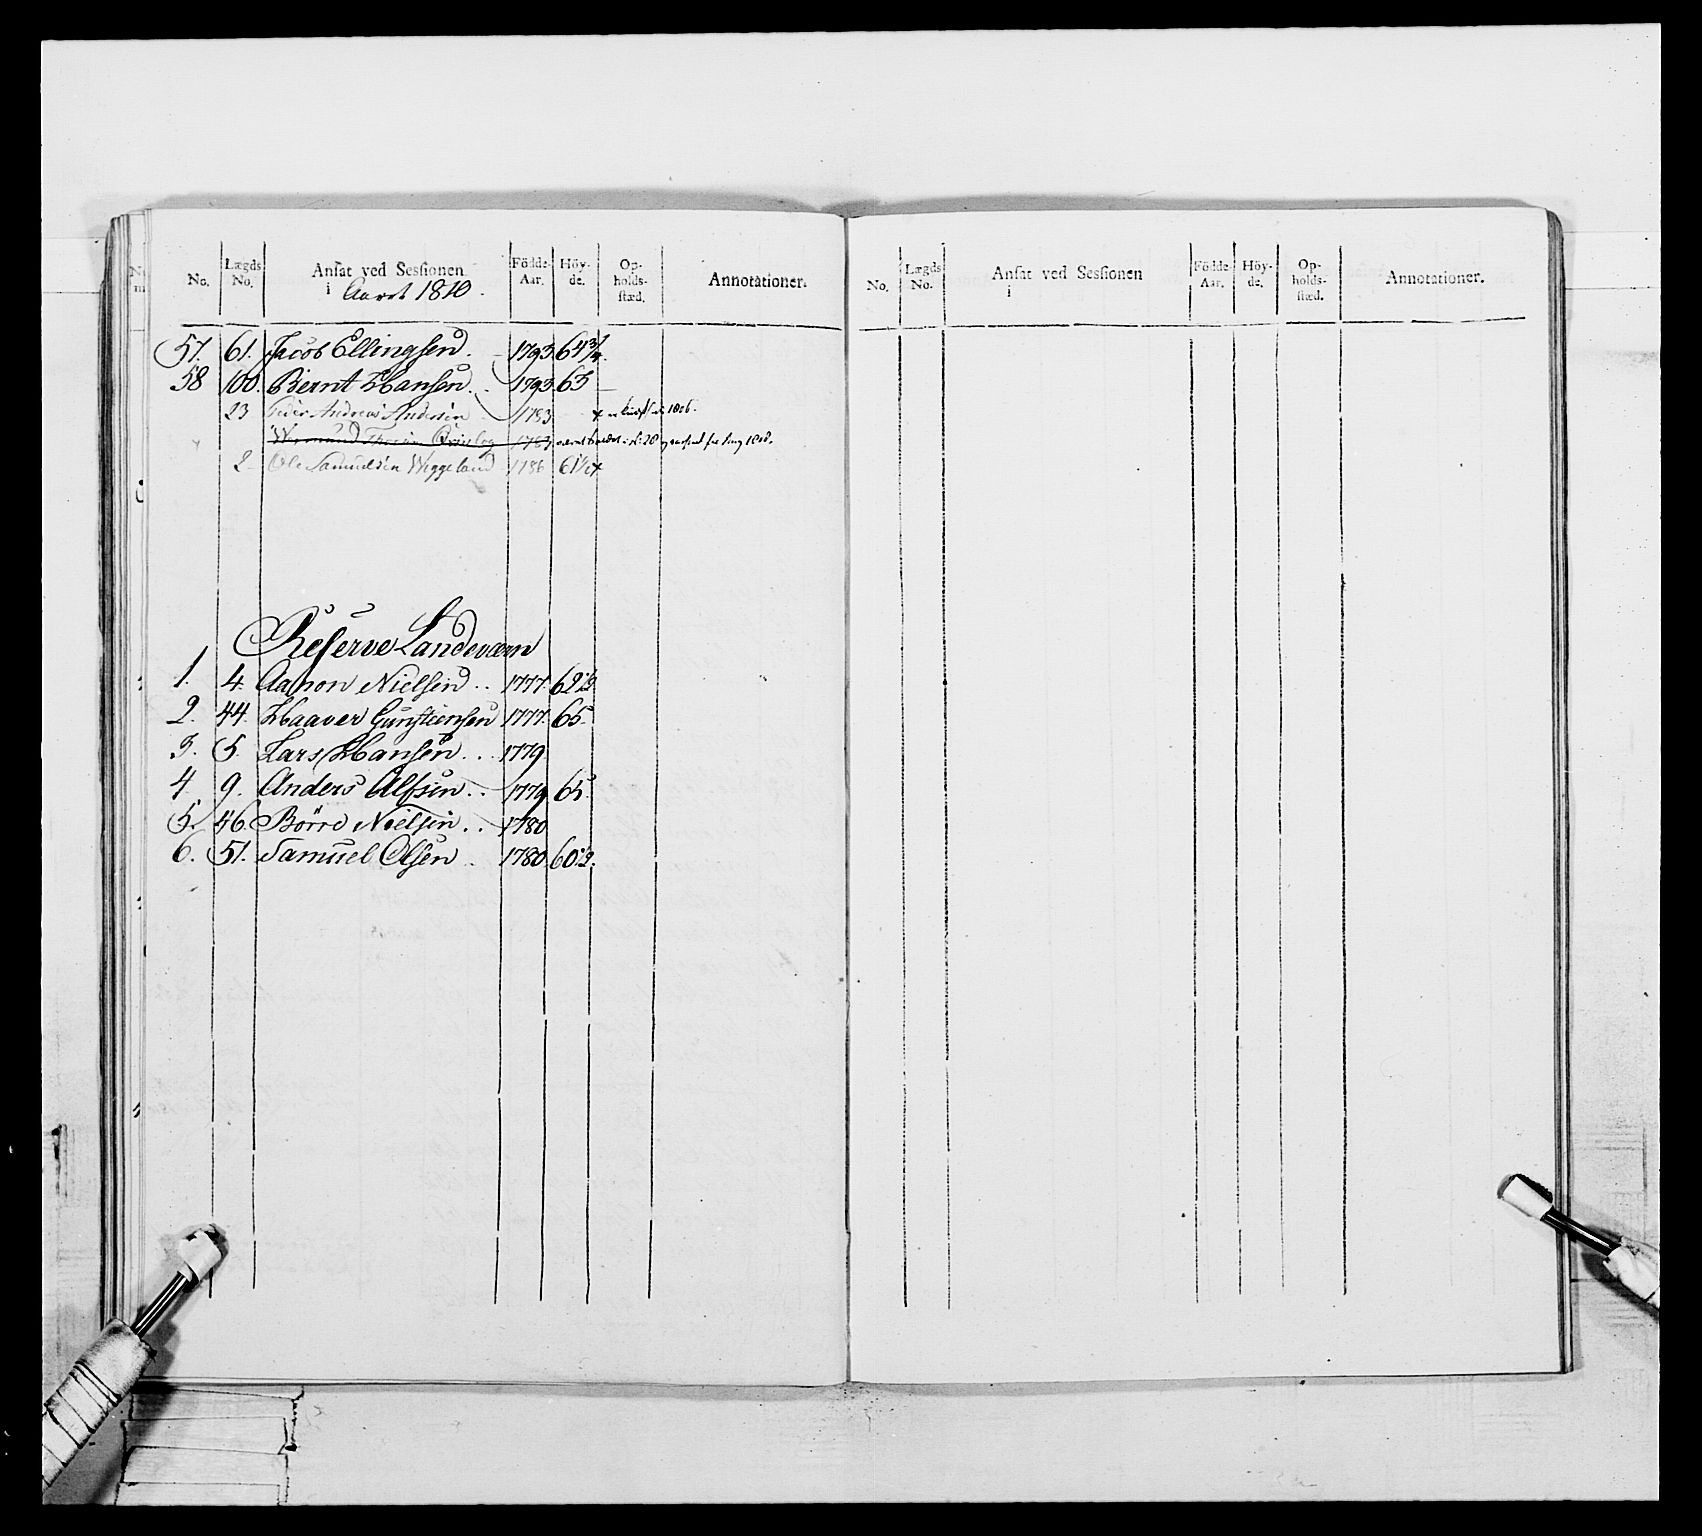 No. Lægds No. Ansat ved Sessionen i Aaret 1810. Födde-Aar. Höy-de. Op-holds-stæd. Annotationer.
57. 61. Jacob Ellingsen. 1793. 64 3/4.
58 100. Bernt Hansen. 1793. 63
23 Peder Andreas Andersen 1783 1806.
2 Ole Samuelsen Wiggeland 1786 61 1/2
Reserve Landeværn
1. 4. Aanon Nielsen .. 1777. 62 1/2.
2. 44. Haaver Gunstensen 1777. 65.
3. 5. Lars Hansen ... 1779.
4. 9. Anders Alfsen .. 1779 65.
5. 46. Börre Nielsen .. 1780
6. 51. Samuel Olsen .. 1780. 60 1/2.
No. Lægds No. Ansat ved Sessionen i Födde-Aar. Höy-de. Op-holds-stæd. Annotationer.